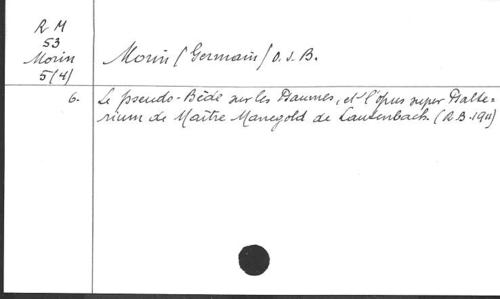 R M
53
Morin
5(4)
Morin (Germain) O.S.B.
6. Le pseudo-Bède sur les Psaumes, et l'opus super Psalte-
rium de Maître Manegold de Lautenbach. (R B. 1911)